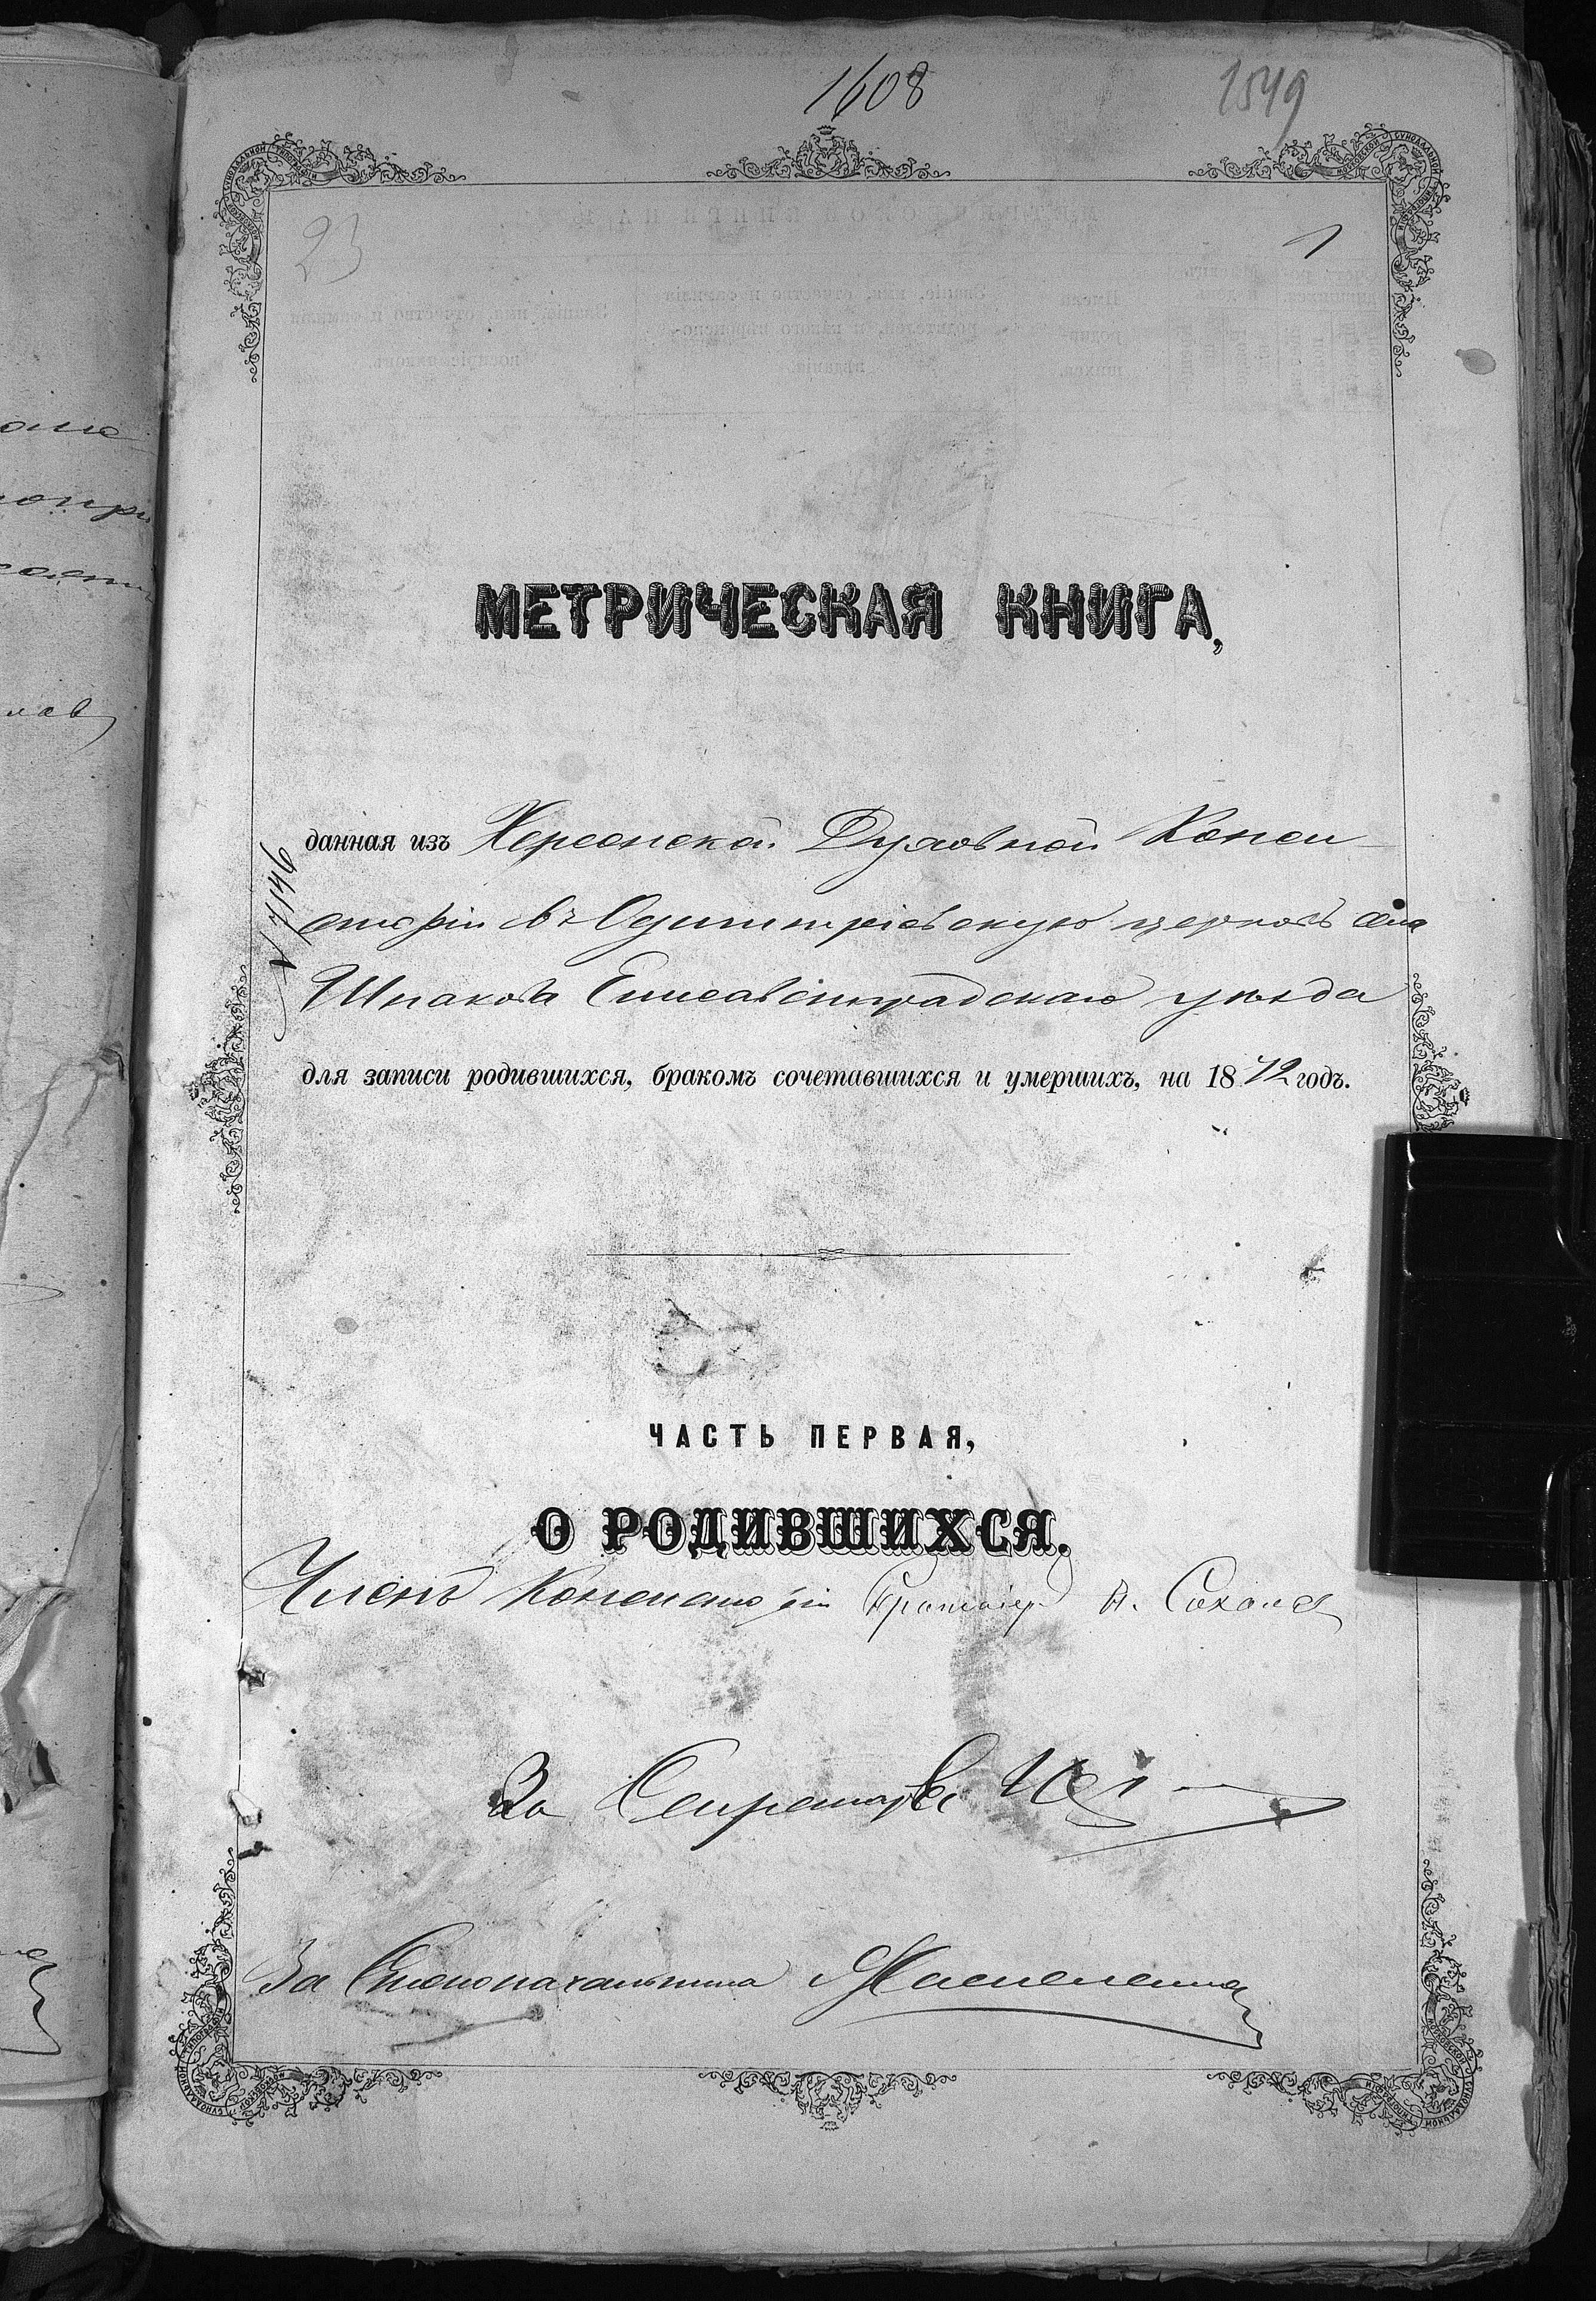 1608
1549
23
1
МЕТРИЧЕСКАЯ КНИГА,
№ 7146
данная изъ Херсонской Духовной Конси-
сторіи въ Одигитріевскую церковь села
Шпакова Елисаветградскаго уѣзда
для записи родившихся, бракомъ сочетавшихся и умершихъ, на 1872 годъ.
ЧАСТЬ ПЕРВАЯ,
О РОДИВШИХСЯ.
Членъ Консисторіи Протоіер.
За Секретаря
За Столоначальника